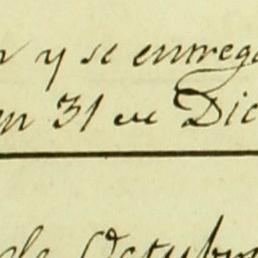 y se entrega
en 31 de Dic
de Octubr